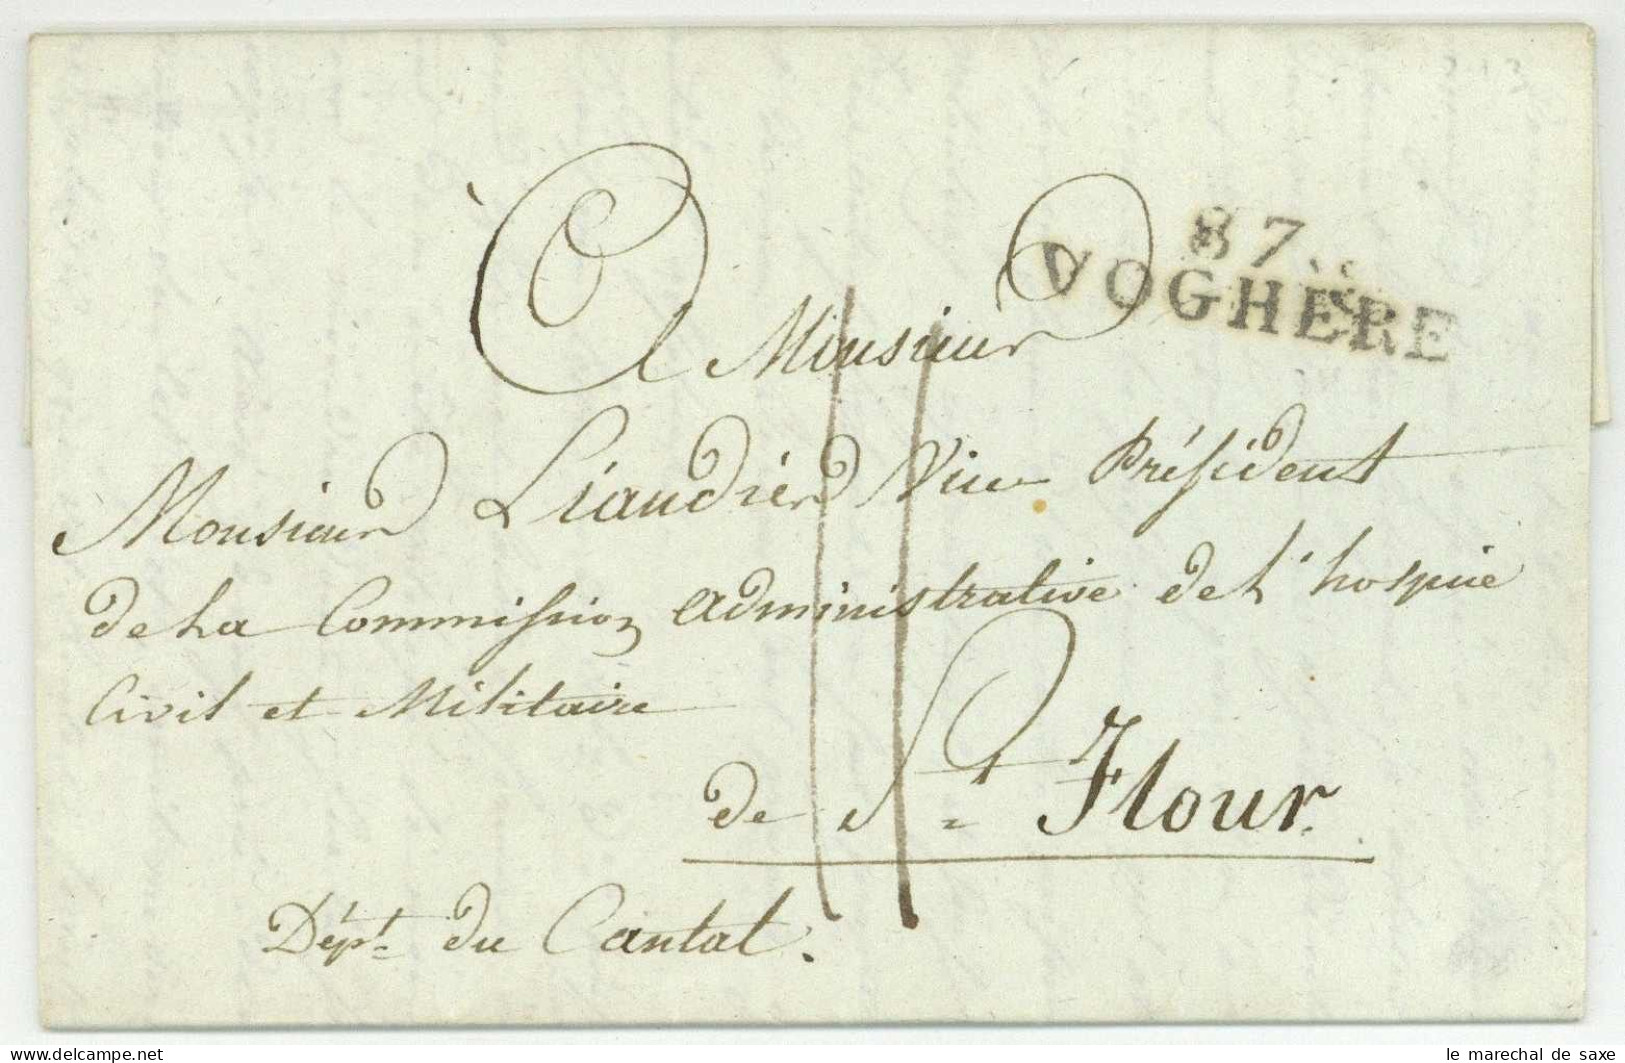 87.
VOGHÈRE
A Monsieur
Monsieur Liaudier Vice Président
de La Commission administrative de L'hospice
Civil et Militaire
de St. Flour.
Dépt. du Cantal.
11
www.delcampe.net
le marechal de saxe